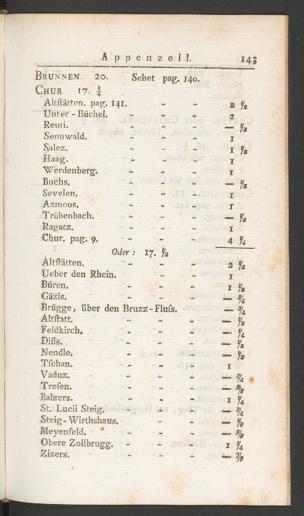 Appenzell. 143
BRUNNEN 20. Sehet pag. 140.
CHUR 17. ¼
Altſtätten. pag. 141. „ „ 2 ½
Unter-Büchel. „ „ 2
Reuti. „ „ „ — ½
Sennwald. „ „ „ 1
Salez. „ „ „ 1 ½
Haag. „ „ „ 1
Werdenberg. „ „ „ 1
Buchs. „ „ „ — ½
Sevelen. „ „ „ 1
Azmoos. „ „ „ 1
Trübenbach. „ „ „ — ½
Ragatz. „ „ „ 1
Chur. pag. 9. „ „ „ 4 ¼
Oder: 17. ½
Altſtätten. „ „ „ 2 ½
Ueber den Rhein. „ „ 1
Büren. „ „ „ 1 ½
Gäzis. „ „ „ — ¾
Brügge, über den Bruzz-Fluſs. „ — ¾
Altſtatt. „ „ „ — ½
Feldkirch. „ „ „ — ¼
Diſis. „ „ „ — ½
Nendle. „ „ „ — ¼
Tſchan. „ „ „ 1
Vaduz. „ „ „ — ¾
Treſen. „ „ „ —
Balzers. „ „ „ 1 ¼
St. Lucii Steig. „ „ „ — ¾
Steig-Wirthshaus. „ „ —
Meyenfeld. „ „ „ —
Obere Zollbrugg. „ „ 1 ¼
Zizers. „ „ „ —